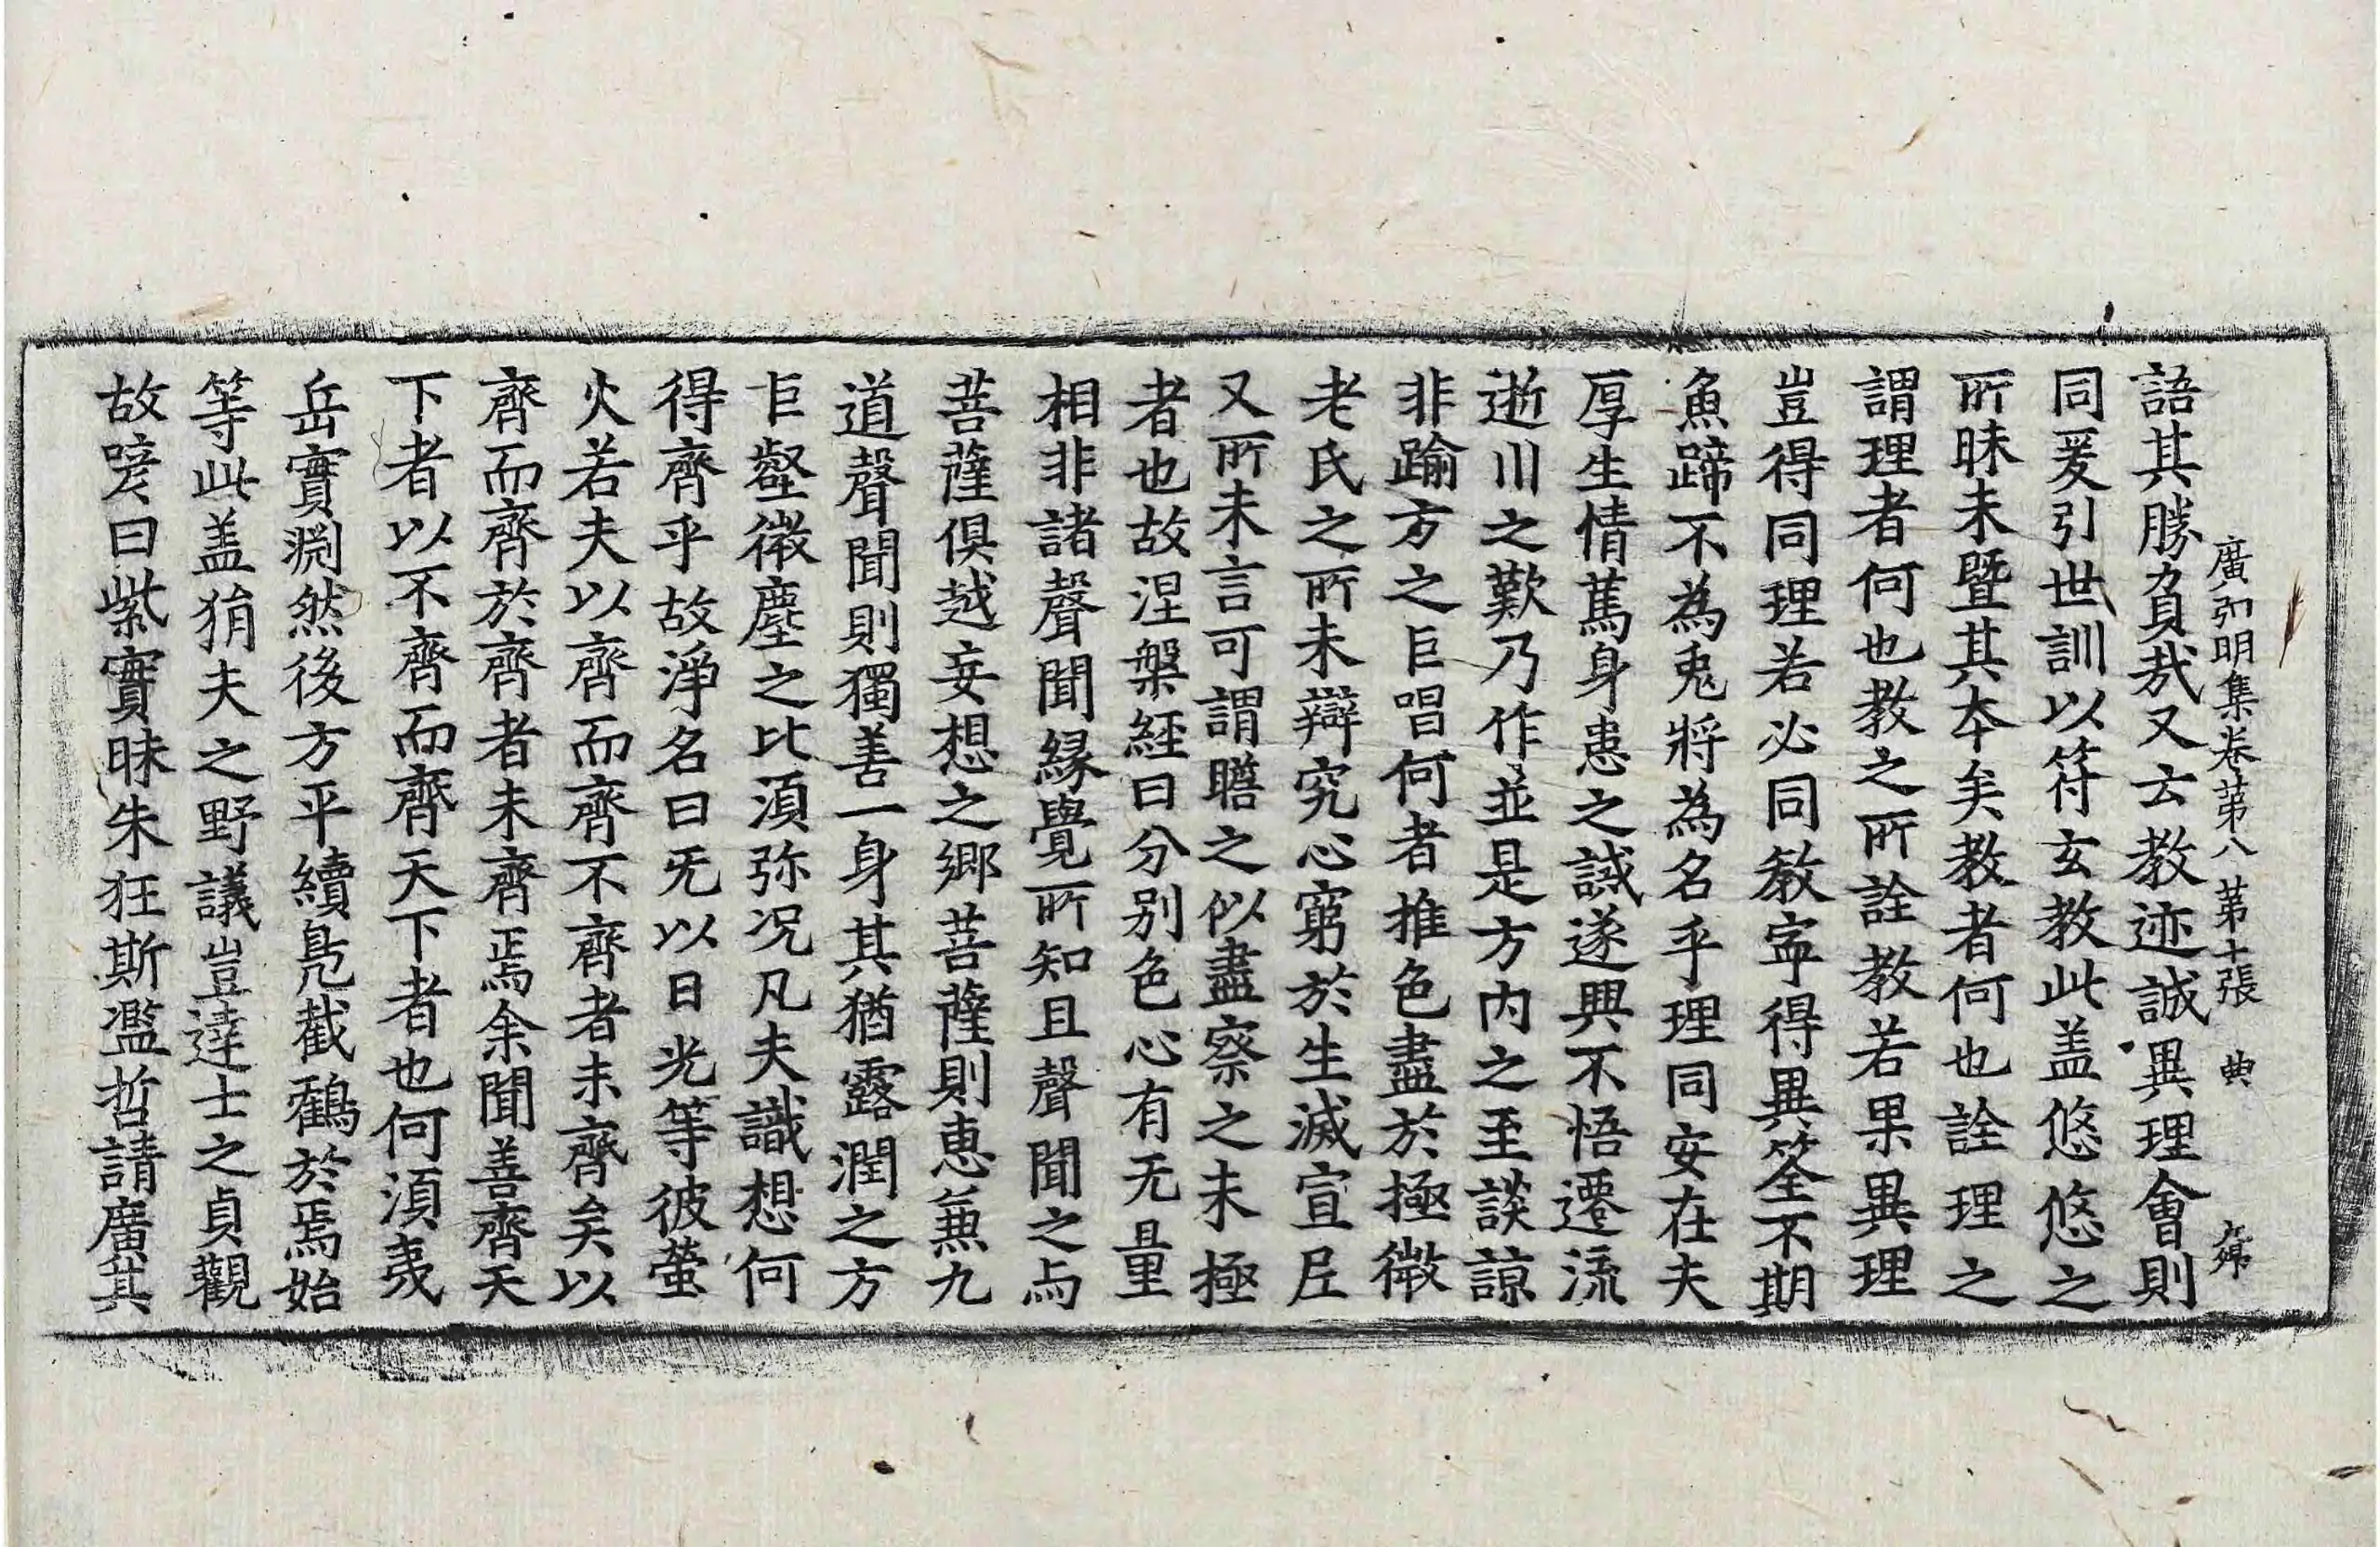 廣弘明集卷第八 第十張 典
語其勝負哉又云教迹誠異理會則
同爰引世訓以符玄教此盖悠悠之
所昧未暨其本矣教者何也詮理之
謂理者何也教之所詮教若果異理
豈得同理若必同教寜得異筌不期
魚蹄不為兎將為名乎理同安在夫
厚生情篤身患之誡遂興不悟遷流
逝川之歎乃作並是方内之至談諒
非踰方之巨唱何者推色盡於極微
老氏之所未辯究心窮於生滅宣尼
又所未言可謂瞻之似盡察之未極
者也故涅槃経曰分别色心有无量
相非諸聲聞縁覺所知且聲聞之与
菩薩俱越妄想之鄉菩薩則恵兼九
道聲聞則獨善一身其猶露潤之方
巨壑微塵之比湏弥况凡夫識想何
得齊乎故淨名曰旡以日光等彼螢
火若夫以齊而齊不齊者未齊矣以
齊而齊於齊者未齊焉余聞善齊天
下者以不齊而齊天下者也何湏夷
岳實淵然後方平續鳬截鶴於焉始
等此盖狷夫之野議豈達士之貞觀
故諺曰紫實昧朱狂斯濫哲請廣其